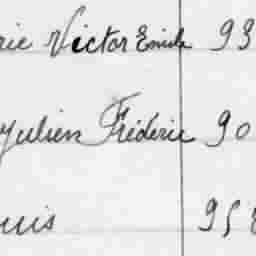 rie Victor Emile 93
Julien Fréderic 90
uis 958